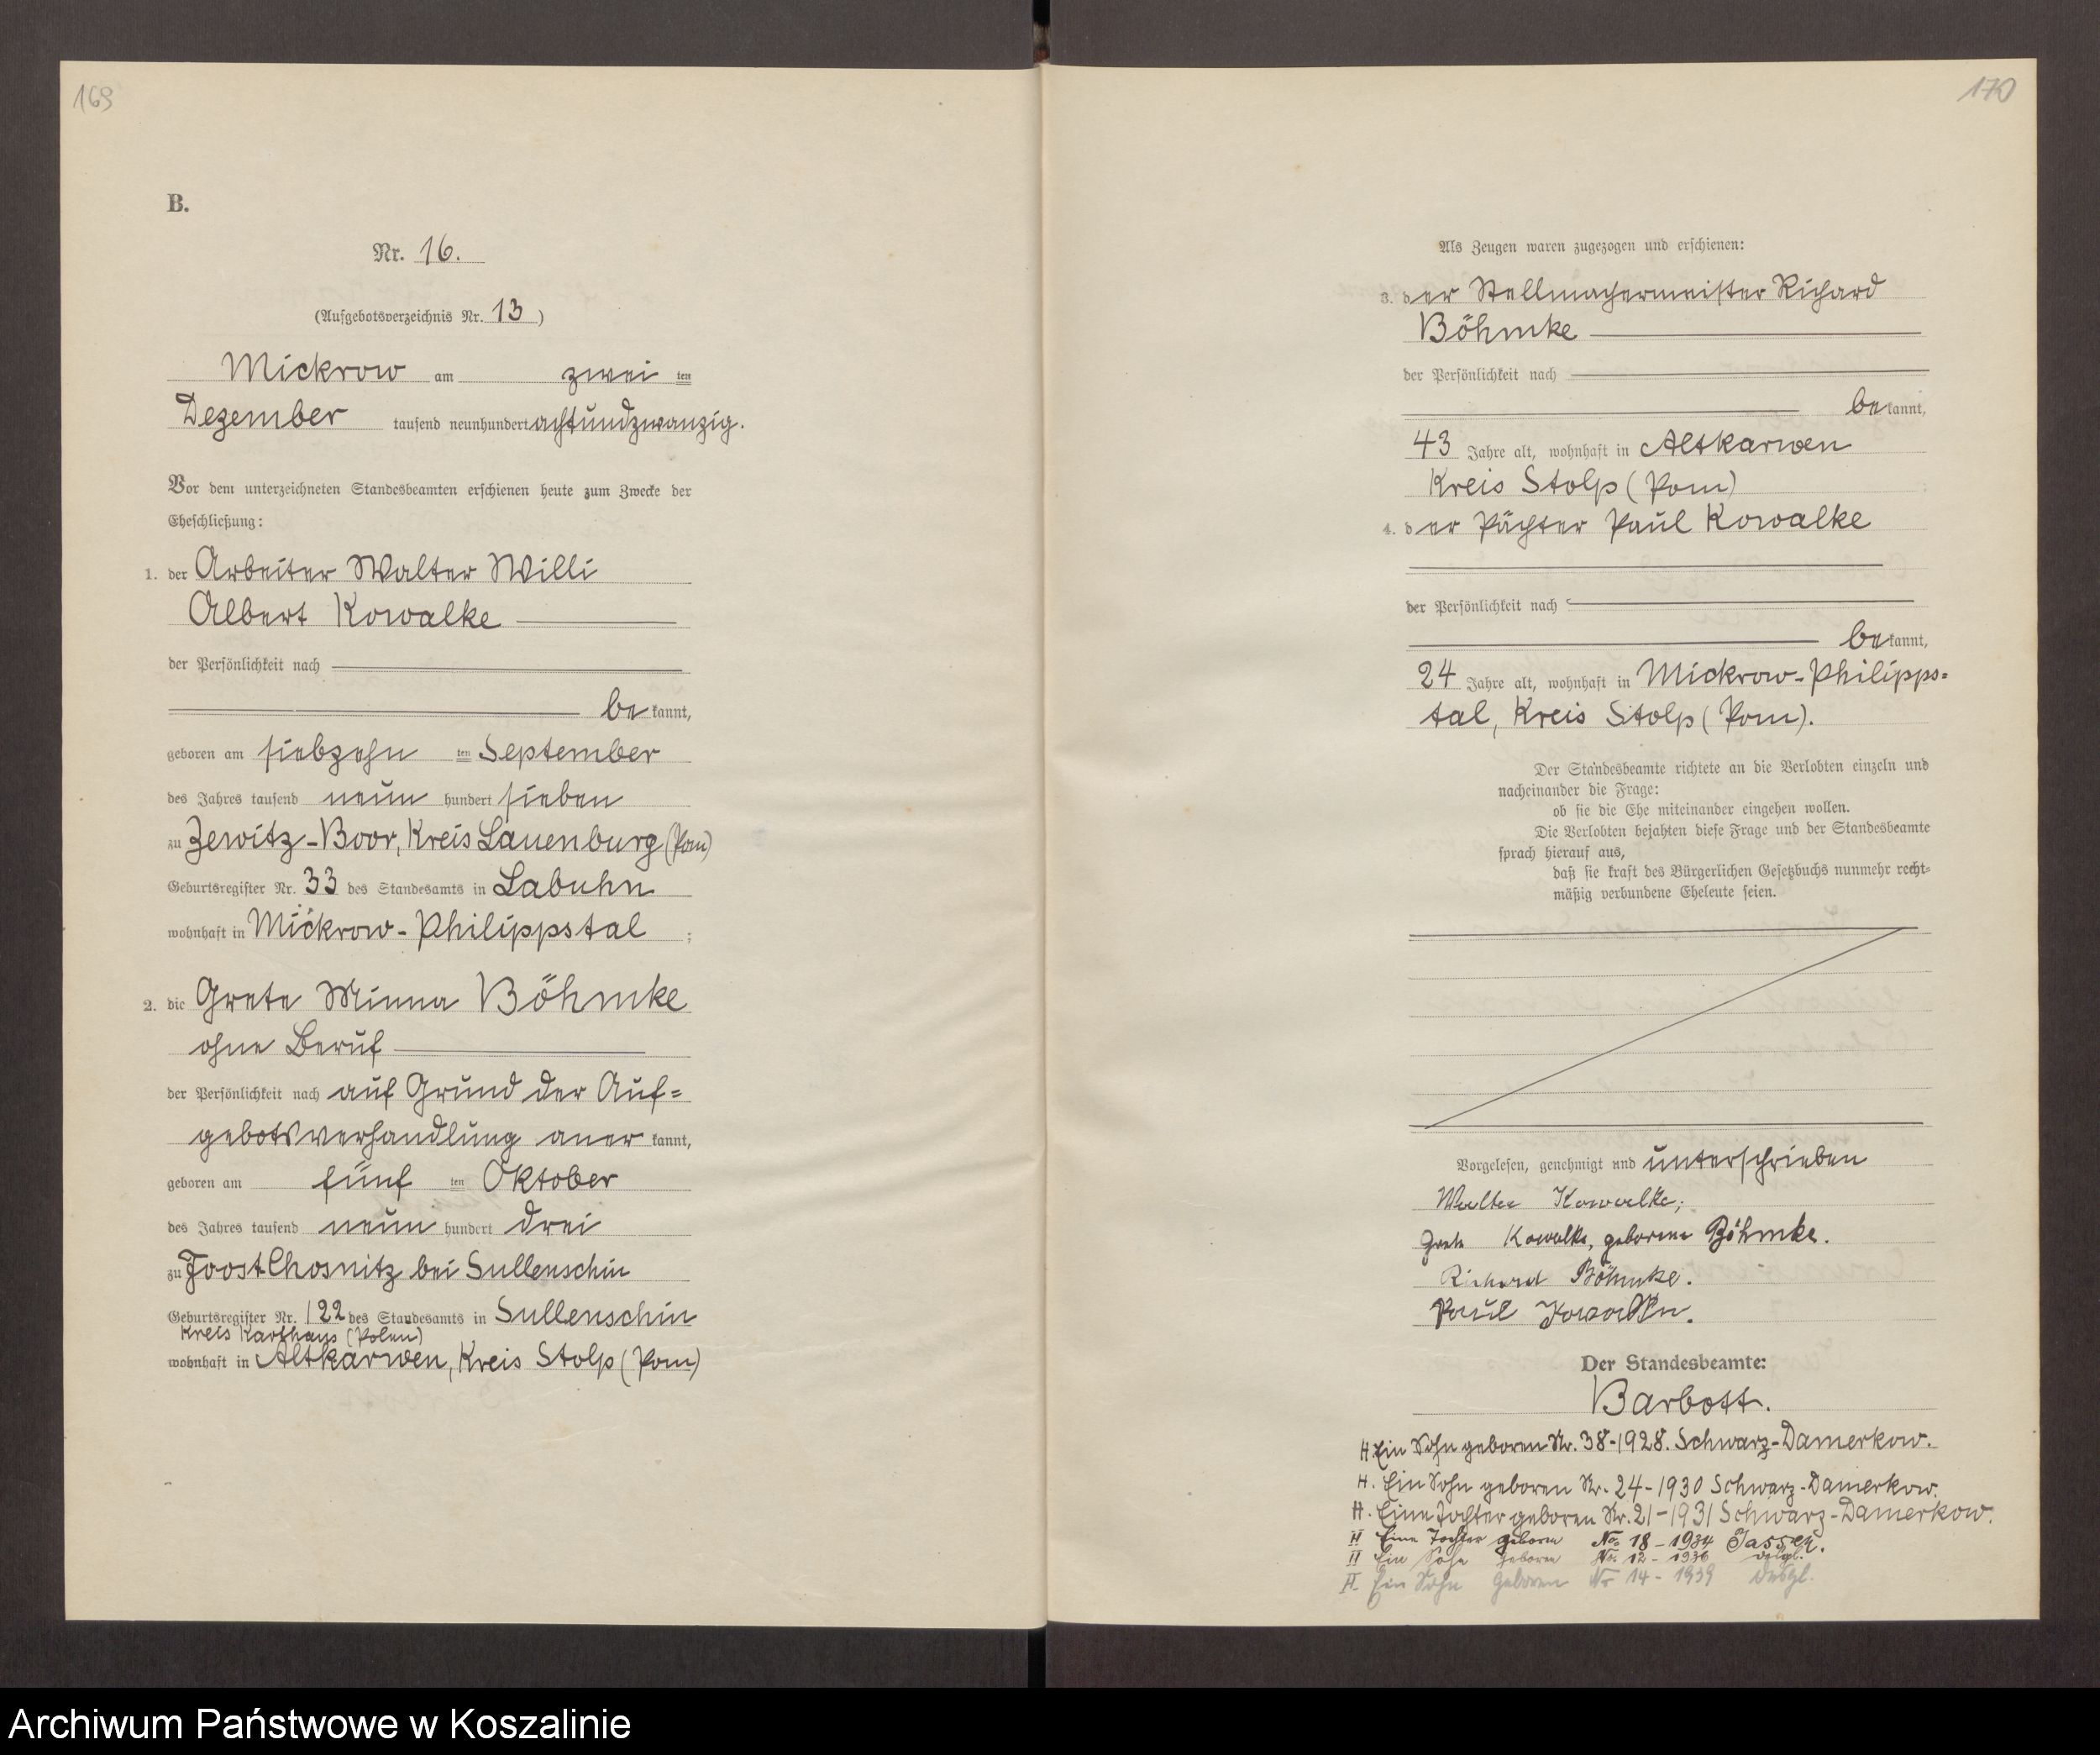 169
B.
Nr. 16.
(Aufgebotsverzeichnis Nr. 13)
Mickrow am zwei ten
Dezember tausend neunhundert achtundzwanzig.
Vor dem unterzeichneten Standesbeamten erschienen heute zum Zwecke der
Eheschließung:
1. der Arbeiter Walter Willi
Albert Kowalke
der Persönlichkeit nach
be kannt,
geboren am siebzehn ten September
des Jahres tausend neun hundert sieben
zu Zewitz-Boor, Kreis Lauenburg (Pom)
Geburtsregister Nr. 33 des Standesamts in Labuhn
wohnhaft in Mickrow-Philippstal ;
2. die Grete Minna Böhmke
ohne Beruf
der Persönlichkeit nach auf Grund der Auf=
gebotsverhandlung aner kannt,
geboren am fünf ten Oktober
des Jahres tausend neun hundert drei
zu Joost Chosnitz bei Sullenschin
Geburtsregister Nr. 122 des Standesamts in Sullenschin
Kreis Karthaus (Polen)
wohnhaft in Altkarwen, Kreis Stolp (Pom)
170
Als Zeugen waren zugezogen und erschienen:
3. der Stellmachermeister Richard
Böhmke
der Persönlichkeit nach
be kannt,
43 Jahre alt, wohnhaft in Altkarwen
Kreis Stolp (Pom)
4. der Pächter Paul Kowalke
der Persönlichkeit nach
be kannt,
24 Jahre alt, wohnhaft in Mickrow-Philipps=
tal, Kreis Stolp (Pom).
Der Standesbeamte richtete an die Verlobten einzeln und
nacheinander die Frage:
ob sie die Ehe miteinander eingehen wollen.
Die Verlobten bejahten diese Frage und der Standesbeamte
sprach hierauf aus,
daß sie kraft des Bürgerlichen Gesetzbuchs nunmehr recht=
mäßig verbundene Eheleute seien.
Vorgelesen, genehmigt und unterschrieben
Walter Kowalke;
Grete Kowalke, geborene Böhmke.
Richard Böhmke.
Paul Kowalke.
Der Standesbeamte:
Barbott.
H. Ein Sohn geboren Nr. 38-1928. Schwarz-Damerkow.
H. Ein Sohn geboren Nr. 24-1930 Schwarz-Damerkow.
H. Eine Tochter geboren Nr. 21-1931 Schwarz-Damerkow.
H Eine Tochter geboren No. 18-1934 Jassen.
H Ein Sohn geboren No. 12-1936 desgl.
H. Ein Sohn geboren Nr 14-1939 desgl.
Archiwum Państwowe w Koszalinie